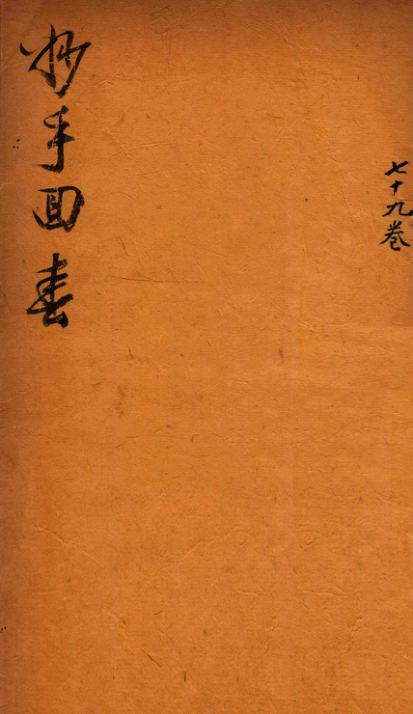 七十九卷
妙手回春